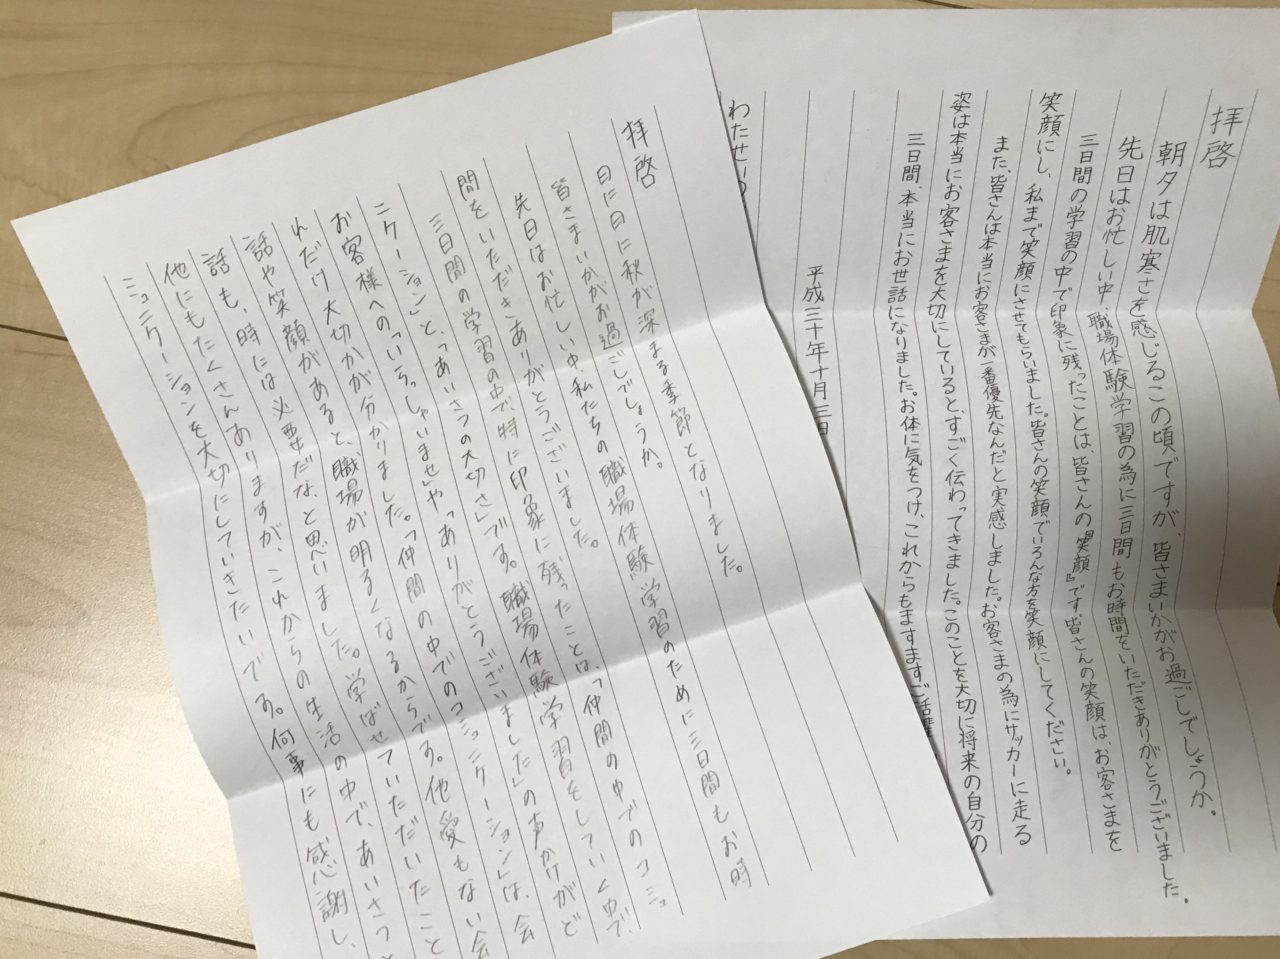 拝啓
朝夕は肌寒さを感じるこの頃ですが、皆さまいかがお過ごしでしょうか。
先日はお忙しい中、職場体験学習の為に三日間もお時間をいただきありがとうございました。
三日間の学習の中で印象に残ったことは、皆さんの『笑顔』です。皆さんの笑顔は、お客さまを
笑顔にし、私まで笑顔にさせてもらいました。皆さんの笑顔でいろんな方を笑顔にしてください。
また、皆さんは本当にお客さまが一番優先なんだと実感しました。お客さまの為にサッカーに走る
姿は本当にお客さまを大切にしていると、すごく伝わってきました。このことを大切に将来の自分の
三日間、本当にお世話になりました。お体に気をつけ、これからもますますご活躍
平成三十年十月三日
わたせい
拝啓
日に日に秋が深まる季節となりました。
皆さまいかがお過ごしでしょうか。
先日はお忙しい中、私たちの職場体験学習のために三日間もお時
間をいただきありがとうございました。
三日間の学習の中で、特に印象に残ったことは、「仲間の中でのコミュ
ニケーション」と、「あいさつの大切さ」です。職場体験学習をしていく中で、
お客様への「いらっしゃいませ」や「ありがとうございました」の声かけがど
れだけ大切かが分かりました。「仲間の中でのコミュニケーション」は、会
話や笑顔があると、職場が明るくなるからです。他愛もない会
話も、時には必要だな、と思いました。学ばせていただいたこと
他にもたくさんありますが、これからの生活の中で、あいさつと
ミュニケーションを大切にしていきたいです。何事にも感謝し、